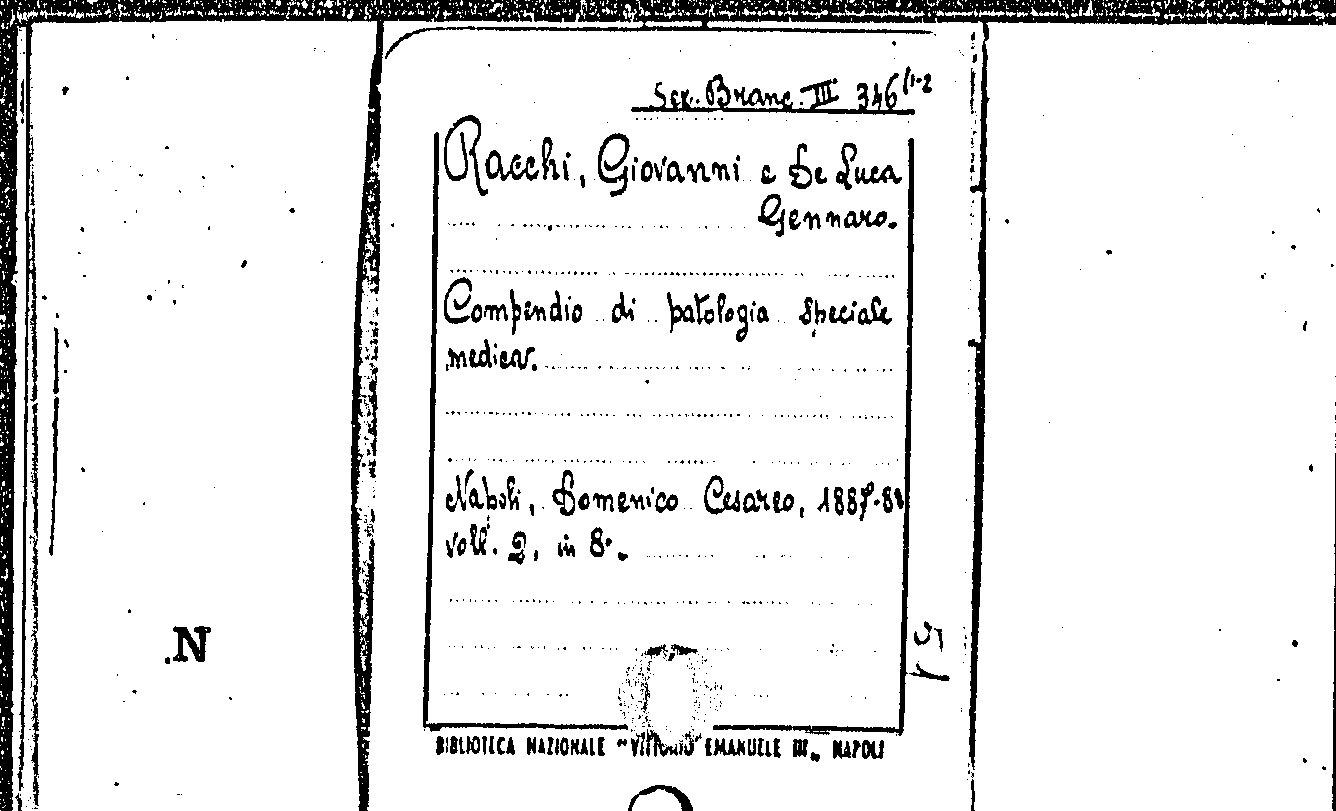 Sez. Branc. III 346/1-2
Racchi, Giovanni e De Luca
Gennaro.
Compendio di patologia speciale
medica.
Napoli, Domenico Cesareo, 1887-88
voll. 2, in 8°.
N
BIBLIOTECA NAZIONALE "VITTORIO EMANUELE III„ NAPOLI